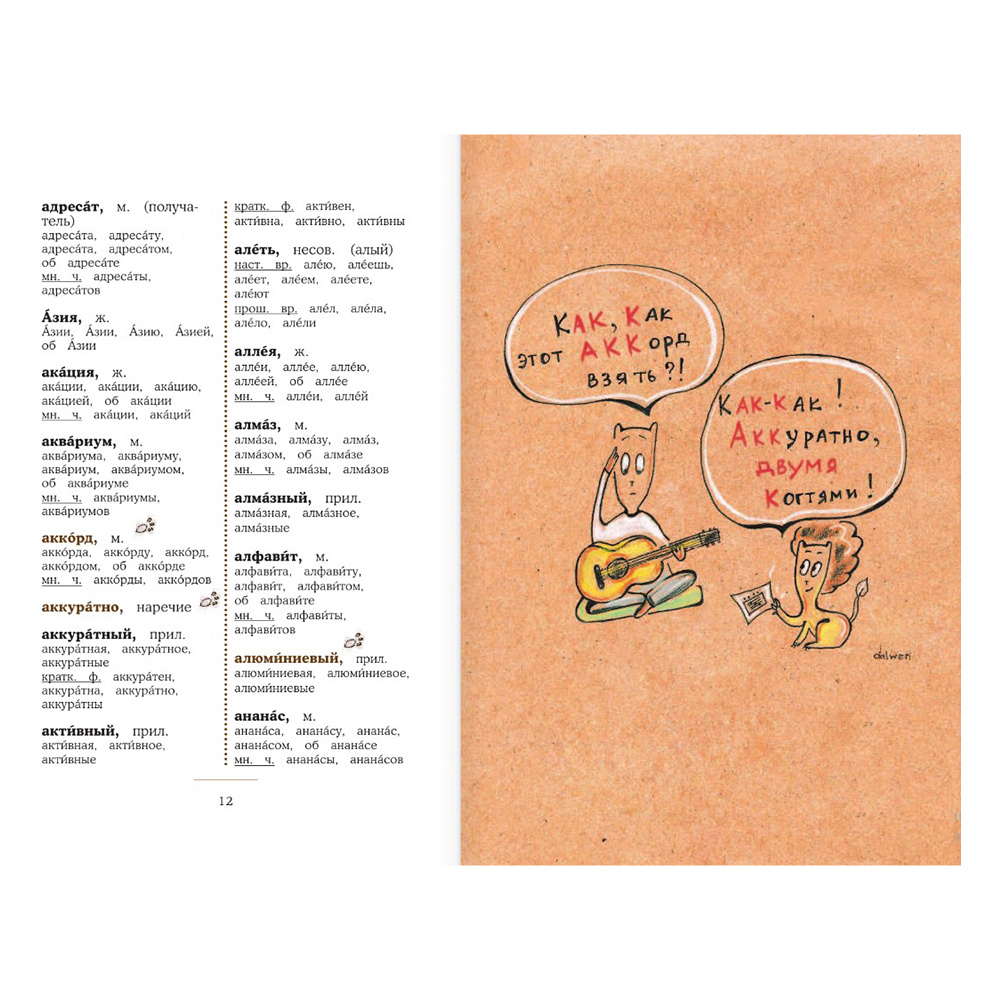 адреса́т, м. (получа-
тель)
адреса́та, адреса́ту,
адреса́та, адреса́том,
об адреса́те
мн. ч. адреса́ты,
адреса́тов
А́зия, ж.
А́зии, А́зии, А́зию, А́зией,
об А́зии
ака́ция, ж.
ака́ции, ака́ции, ака́цию,
ака́цией, об ака́ции
мн. ч. ака́ции, ака́ций
аква́риум, м.
аква́риума, аква́риуму,
аква́риум, аква́риумом,
об аква́риуме
мн. ч. аква́риумы,
аква́риумов
акко́рд, м.
акко́рда, акко́рду, акко́рд,
акко́рдом, об акко́рде
мн. ч. акко́рды, акко́рдов
аккура́тно, наречие
аккура́тный, прил.
аккура́тная, аккура́тное,
аккура́тные
кратк. ф. аккура́тен,
аккура́тна, аккура́тно,
аккура́тны
акти́вный, прил.
акти́вная, акти́вное,
акти́вные
кратк. ф. акти́вен,
акти́вна, акти́вно, акти́вны
але́ть, несов. (алый)
наст. вр. але́ю, але́ешь,
але́ет, але́ем, але́ете,
але́ют
прош. вр. але́л, але́ла,
але́ло, але́ли
алле́я, ж.
алле́и, алле́е, алле́ю,
алле́ей, об алле́е
мн. ч. алле́и, алле́й
алма́з, м.
алма́за, алма́зу, алма́з,
алма́зом, об алма́зе
мн. ч. алма́зы, алма́зов
алма́зный, прил.
алма́зная, алма́зное,
алма́зные
алфави́т, м.
алфави́та, алфави́ту,
алфави́т, алфави́том,
об алфави́те
мн. ч. алфави́ты,
алфави́тов
алюми́ниевый, прил.
алюми́ниевая, алюми́ниевое,
алюми́ниевые
анана́с, м.
анана́са, анана́су, анана́с,
анана́сом, об анана́се
мн. ч. анана́сы, анана́сов
12
КАК, КАК
ЭТОТ АККОРД
ВЗЯТЬ?!
КАК-КАК!
АККУРАТНО,
ДВУМЯ
КОГТЯМИ!
dalwen